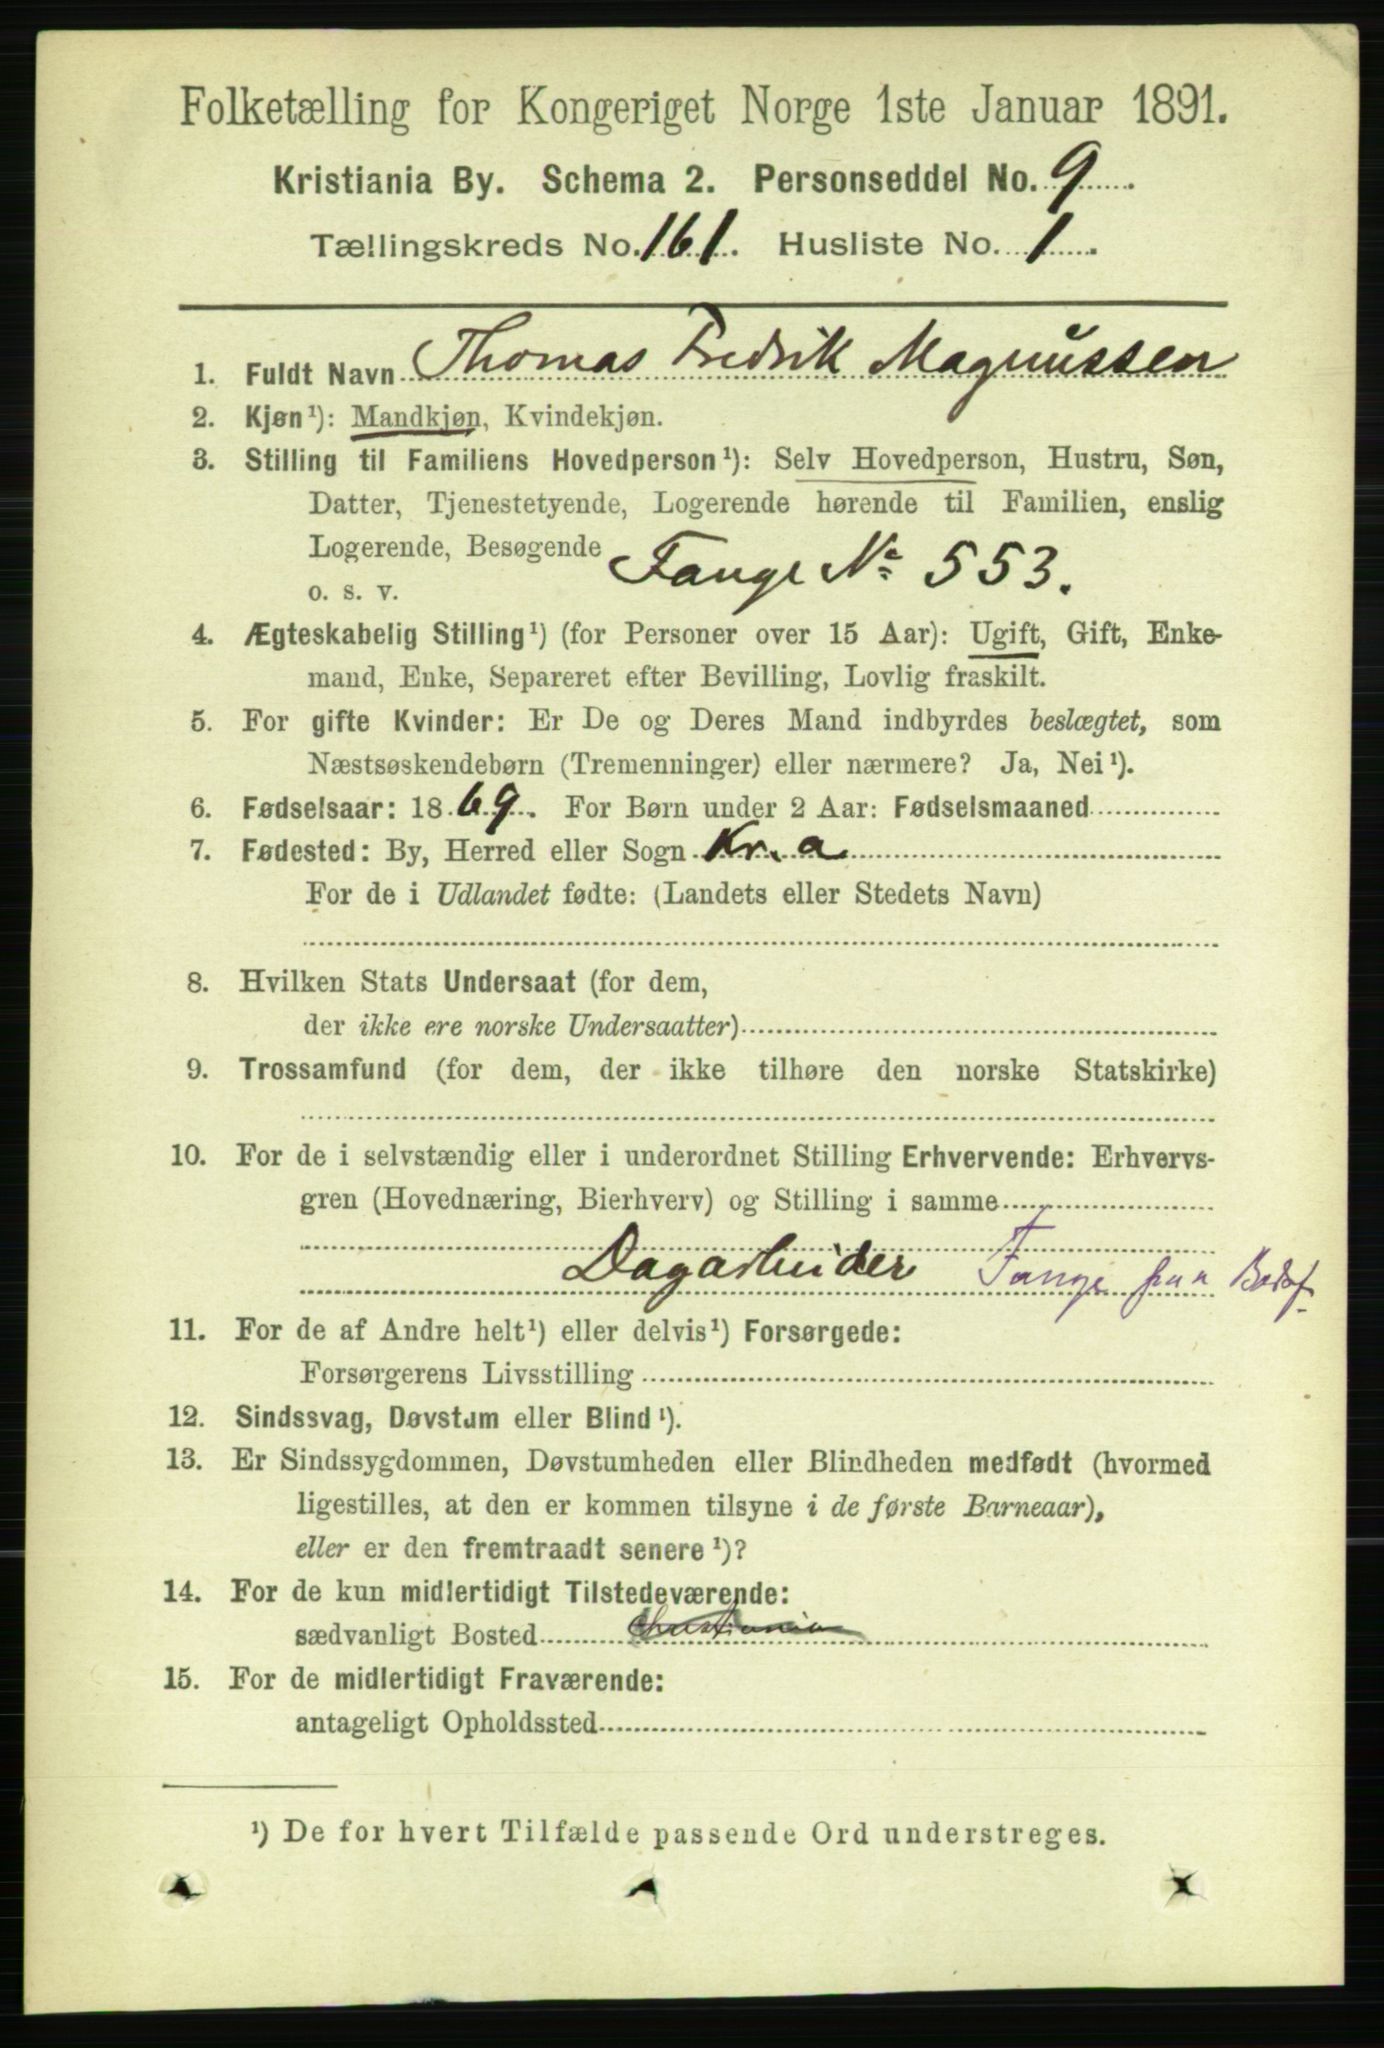 Folketælling for Kongeriget Norge 1ste Januar 1891.
Kristiania By. Schema 2. Personseddel No. 9.
Tællingskreds No. 161. Husliste No. 1.
1. Fuldt Navn Thomas Fredrik Magnussen
2. Kjøn¹): Mandkjøn, Kvindekjøn.
3. Stilling til Familiens Hovedperson¹): Selv Hovedperson, Hustru, Søn,
Datter, Tjenestetyende, Logerende hørende til Familien, enslig
Logerende, Besøgende
o. s. v. Fange No 553.
4. Ægteskabelig Stilling¹) (for Personer over 15 Aar): Ugift, Gift, Enke-
mand, Enke, Separeret efter Bevilling, Lovlig fraskilt.
5. For gifte Kvinder: Er De og Deres Mand indbyrdes beslægtet, som
Næstsøskendebørn (Tremenninger) eller nærmere? Ja, Nei¹).
6. Fødselsaar: 1869. For Børn under 2 Aar: Fødselsmaaned
7. Fødested: By, Herred eller Sogn Kr.a
For de i Udlandet fødte: (Landets eller Stedets Navn)
8. Hvilken Stats Undersaat (for dem,
der ikke ere norske Undersaatter)
9. Trossamfund (for dem, der ikke tilhøre den norske Statskirke)
10. For de i selvstændig eller i underordnet Stilling Erhvervende: Erhvervs-
gren (Hovednæring, Bierhverv) og Stilling i samme
Dagarbeider Fange paa Bodsf
11. For de af Andre helt¹) eller delvis¹) Forsørgede:
Forsørgerens Livsstilling
12. Sindssvag, Døvstum eller Blind¹).
13. Er Sindssygdommen, Døvstumheden eller Blindheden medfødt (hvormed
ligestilles, at den er kommen tilsyne i de første Barneaar),
eller er den fremtraadt senere¹)?
14. For de kun midlertidigt Tilstedeværende:
sædvanligt Bosted Christiania
15. For de midlertidigt Fraværende:
antageligt Opholdssted
¹) De for hvert Tilfælde passende Ord understreges.